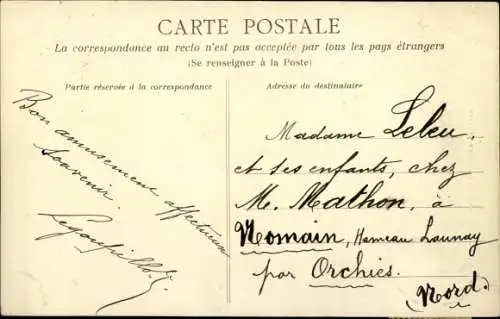 CARTE POSTALE
La correspondance au recto n'est pas acceptée par tous les pays étrangers
(Se renseigner à la Poste)
Partie réservée à la correspondance
Adresse du destinataire
Bon amusement affectueux
souvenir.
Madame Leleu
et ses enfants, chez
M. Mathon, à
Nomain, Hameau Launay
par Orchies.
(Nord.)